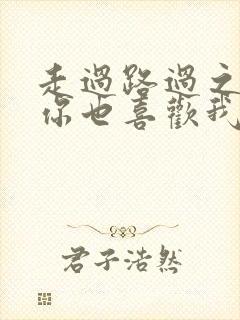 走過路過之
你也喜歡我
君子浩然